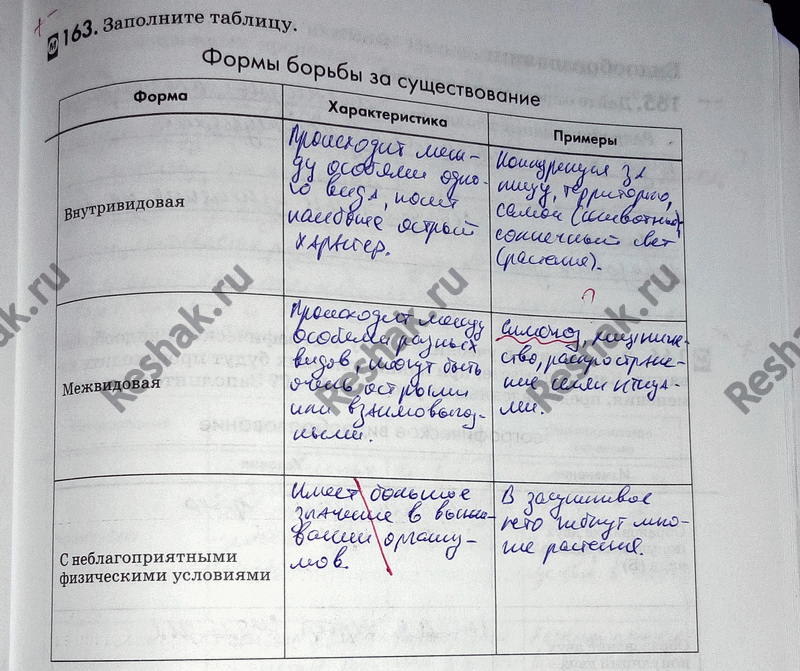 163. Заполните таблицу.
Формы борьбы за существование
Форма
Характеристика
Примеры
Внутривидовая
Происходит меж-
ду особями одно-
го вида, носит
наиболее острый
характер.
Конкуренция за
пищу, территорию,
самок (животные),
солнечный свет
(растения).
Межвидовая
Происходит между
особями разных
видов, могут быть
очень острыми
или взаимовыгод-
ными.
Симбиоз, хищниче-
ство, распростране-
ние семян птица-
ми.
С неблагоприятными
физическими условиями
Имеет большое
значение в выжи-
вании организ-
мов.
В засушливое
лето гибнут мно-
гие растения.
Reshak.ru
Reshak.ru
Reshak.ru
Reshak.ru